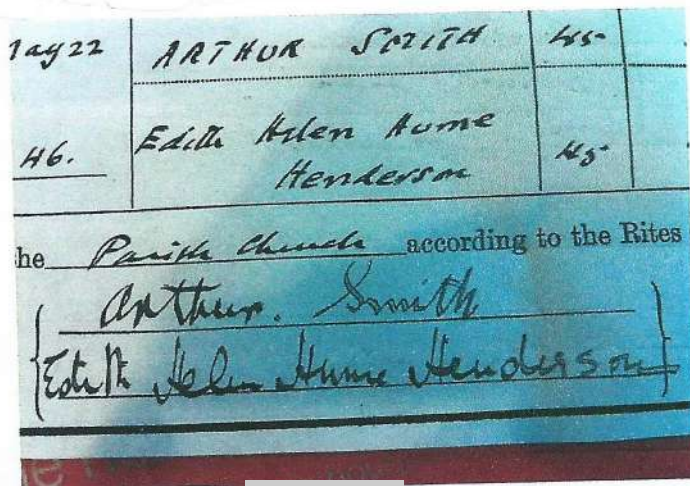 May 22 ARTHUR SMITH 45
46. Edith Helen Hume
Henderson 45
he Parish Church according to the Rites
Arthur. Smith
Edith Helen Hume Henderson